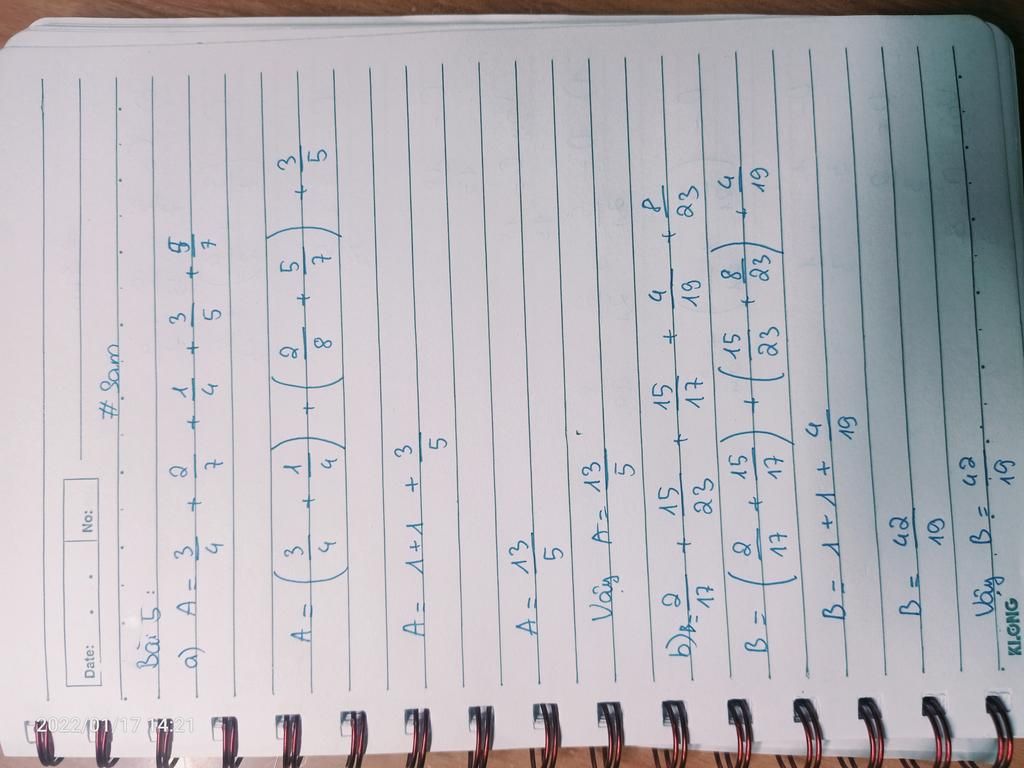 Date: . . No:
# Sam
Bài 5:
a) A = 3/4 + 2/7 + 1/4 + 3/5 + 5/7
A = (3/4 + 1/4) + (2/8 + 5/7) + 3/5
A = 1+1 + 3/5
A = 13/5
Vậy A = 13/5
b) B = 2/17 + 15/23 + 15/17 + 4/19 + 8/23
B = (2/17 + 15/17) + (15/23 + 8/23) + 4/19
B = 1+1+ 4/19
B = 42/19
Vậy B = 42/19
KLONG
2022/01/17 14:21